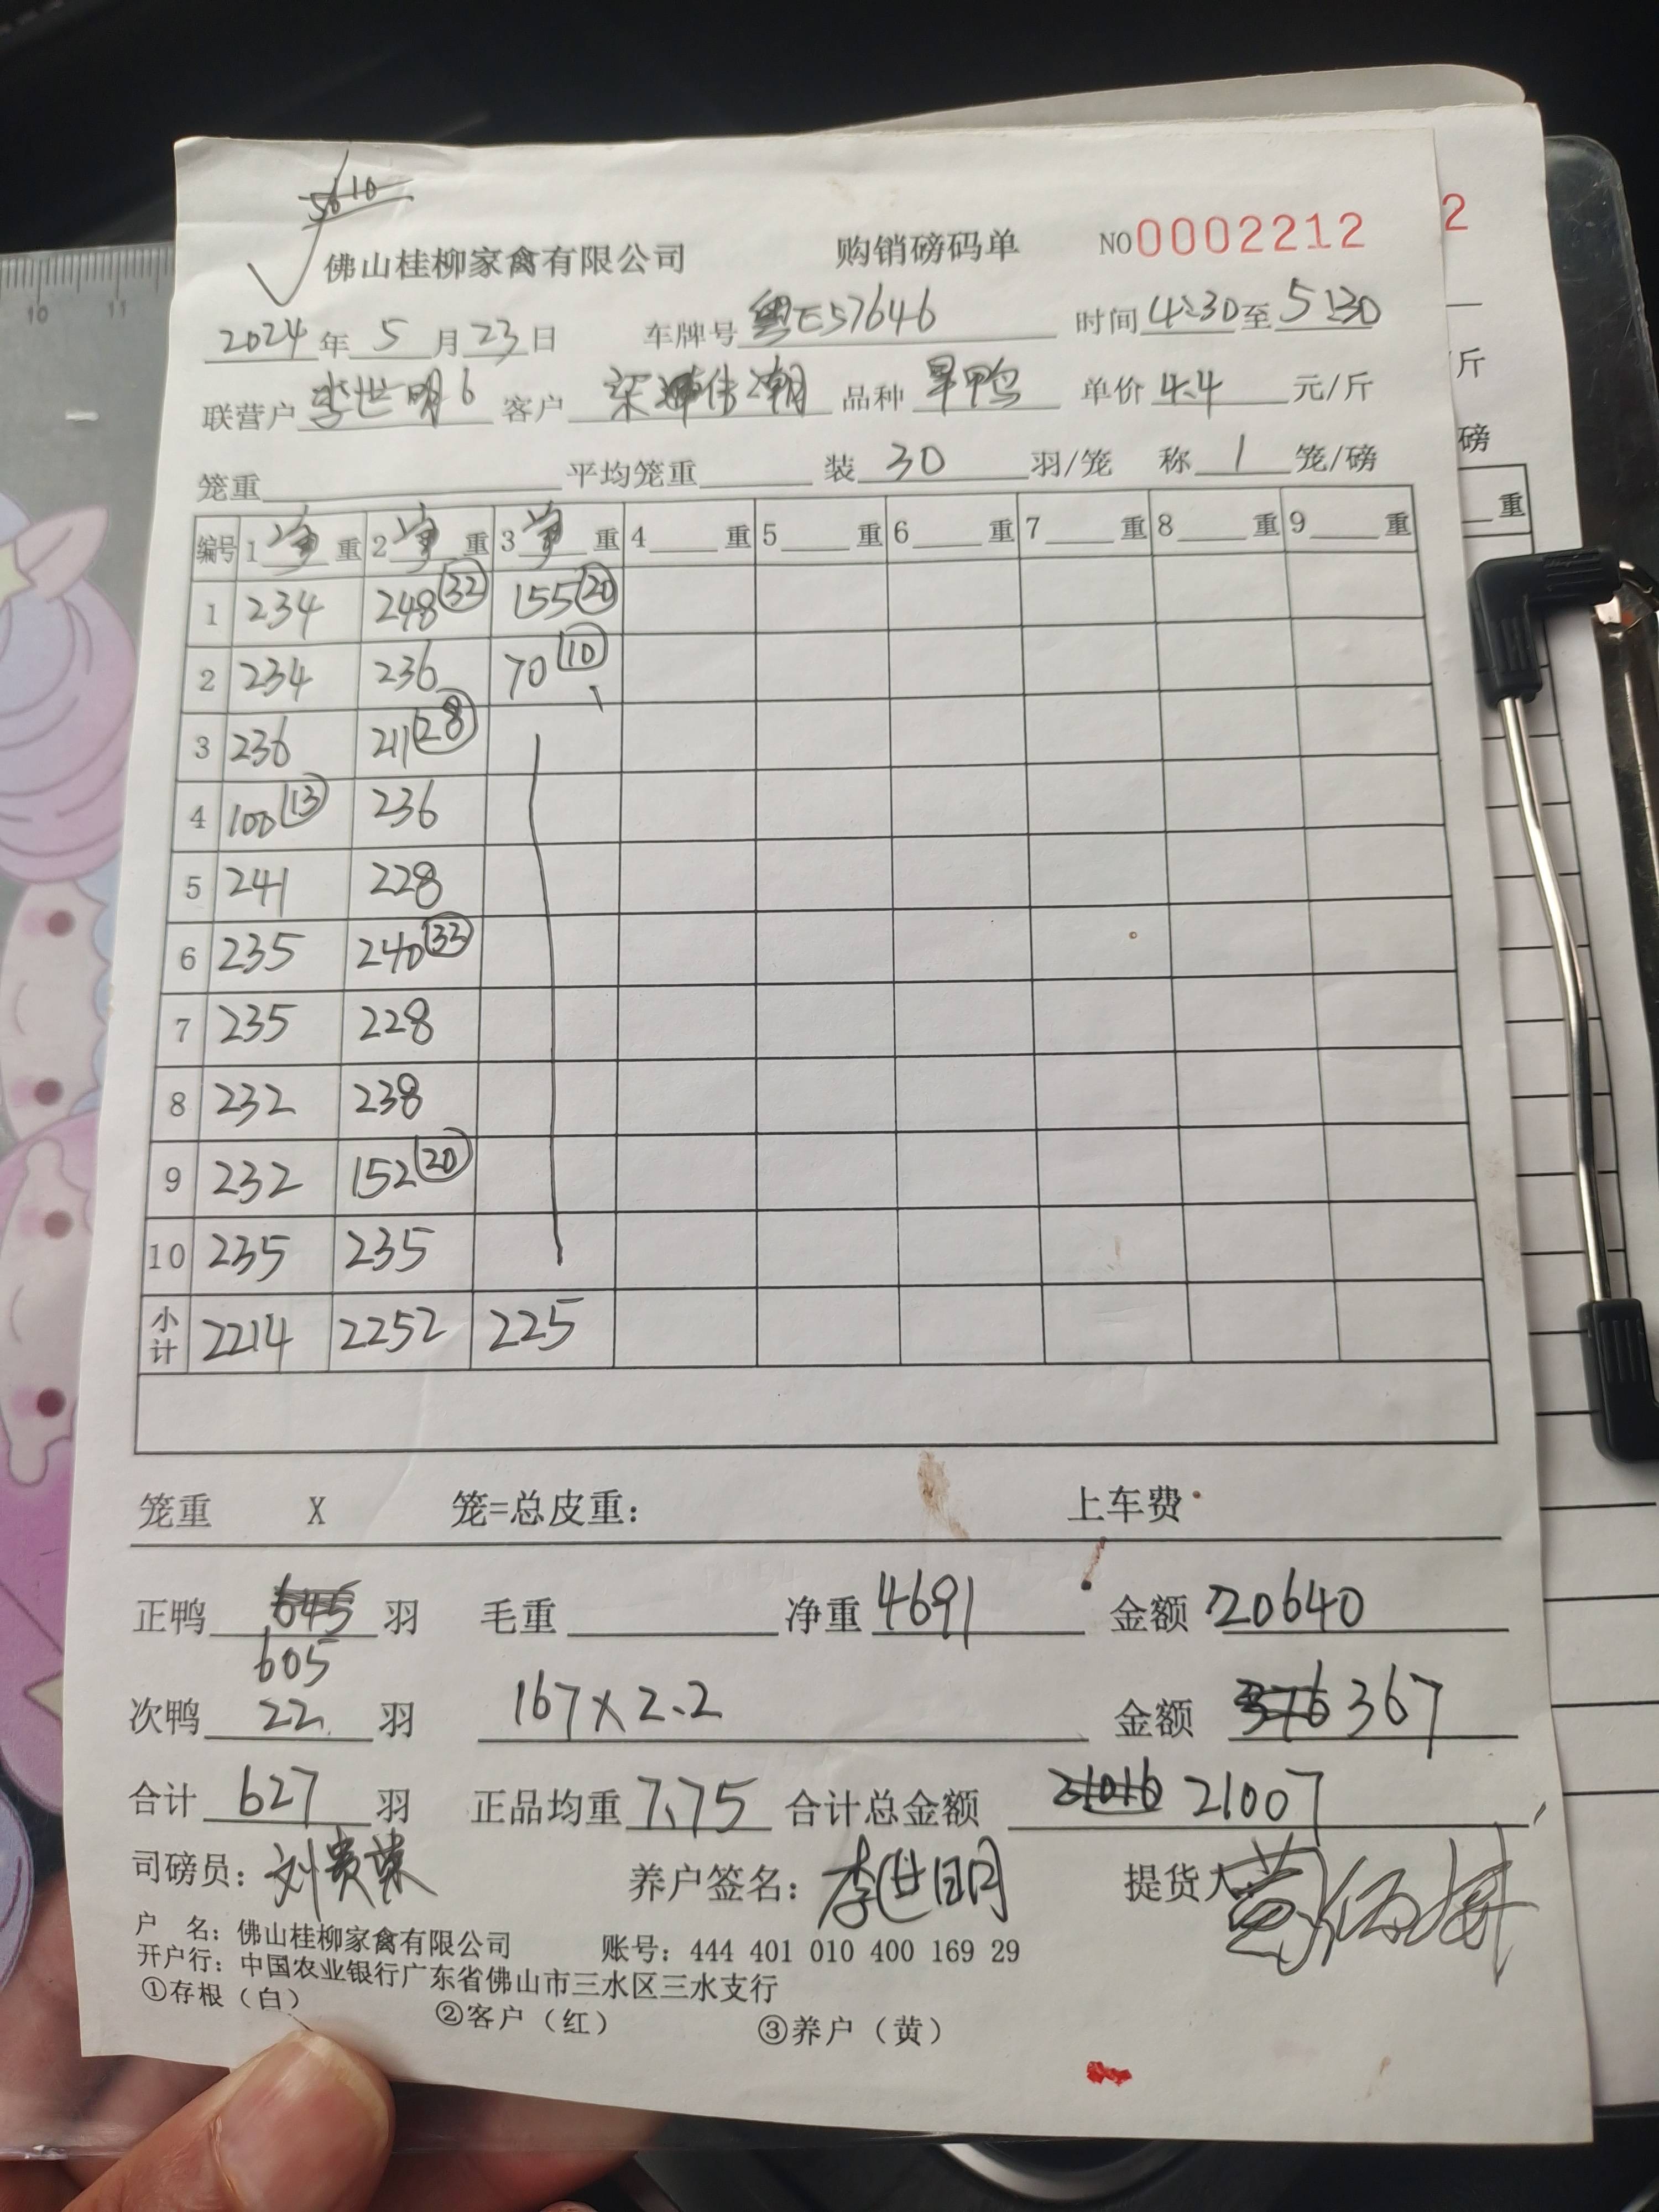 5610
佛山桂柳家禽有限公司 购销磅码单 NO0002212
2024年5月23日 车牌号粤E57646 时间4:30至5:30
联营户李世明6 客户 品种旱鸭 单价4.4元/斤
笼重 平均笼重 装30羽/笼 称1笼/磅
编号 1净重 2净重 3净重 4重 5重 6重 7重 8重 9重
1 234 248(32) 155(20)
2 234 236 70(10)
3 236 211(28)
4 100(13) 236
5 241 228
6 235 240(33)
7 235 228
8 232 238
9 232 152(20)
10 235 235
小计 2214 2252 225
笼重 X 笼=总皮重: 上车费
正鸭645羽 毛重 净重4691 金额20640
605
次鸭22羽 167×2.2 金额376 367
合计627羽 正品均重7.75 合计总金额21016 21007
司磅员:刘贵荣 养户签名:李世明 提货人:
户 名:佛山桂柳家禽有限公司 账号:444 401 010 400 169 29
开户行:中国农业银行广东省佛山市三水区三水支行
①存根(白) ②客户(红) ③养户(黄)
2
斤
磅
重
10 11